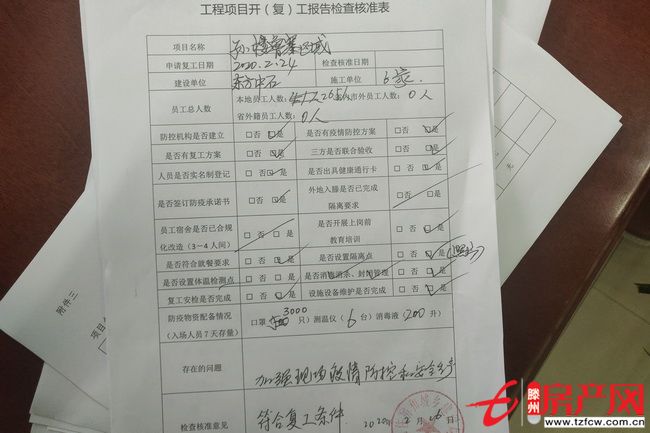 工程项目开（复）工报告检查核准表
项目名称
申请复工日期 2020.2.24 检查核准日期
建设单位 东方中石 施工单位 6家
员工总人数 本地员工人数: 省内市外员工人数: 0人
省外籍员工人数: 0人
防控机构是否建立 □否 □是 是否有疫情防控方案 □否 □是
是否有复工方案 □否 □是 三方是否联合验收 □否 □是
人员是否实名制登记 □否 □是 是否出具健康通行卡 □否 □是
是否签订防疫承诺书 □否 □是 外地入滕是否已完成隔离要求 □否 □是
员工宿舍是否已合规化改造（3-4人间） □否 □是 是否开展上岗前教育培训 □否 □是
是否符合就餐要求 □否 □是 是否设置隔离点 □否 □是
是否设置体温检测点 □否 □是 是否消毒消杀、封闭管理 □否 □是
复工安检是否完成 □否 □是 设施设备维护是否完成 □否 □是
防疫物资配备情况（入场人员7天存量） 口罩 3000 只）测温仪（6台）消毒液（200升）
存在的问题 加强现场疫情防控和安全生产
检查核准意见 符合复工条件.
附件三
滕州房产网
www.tzfcw.com.cn